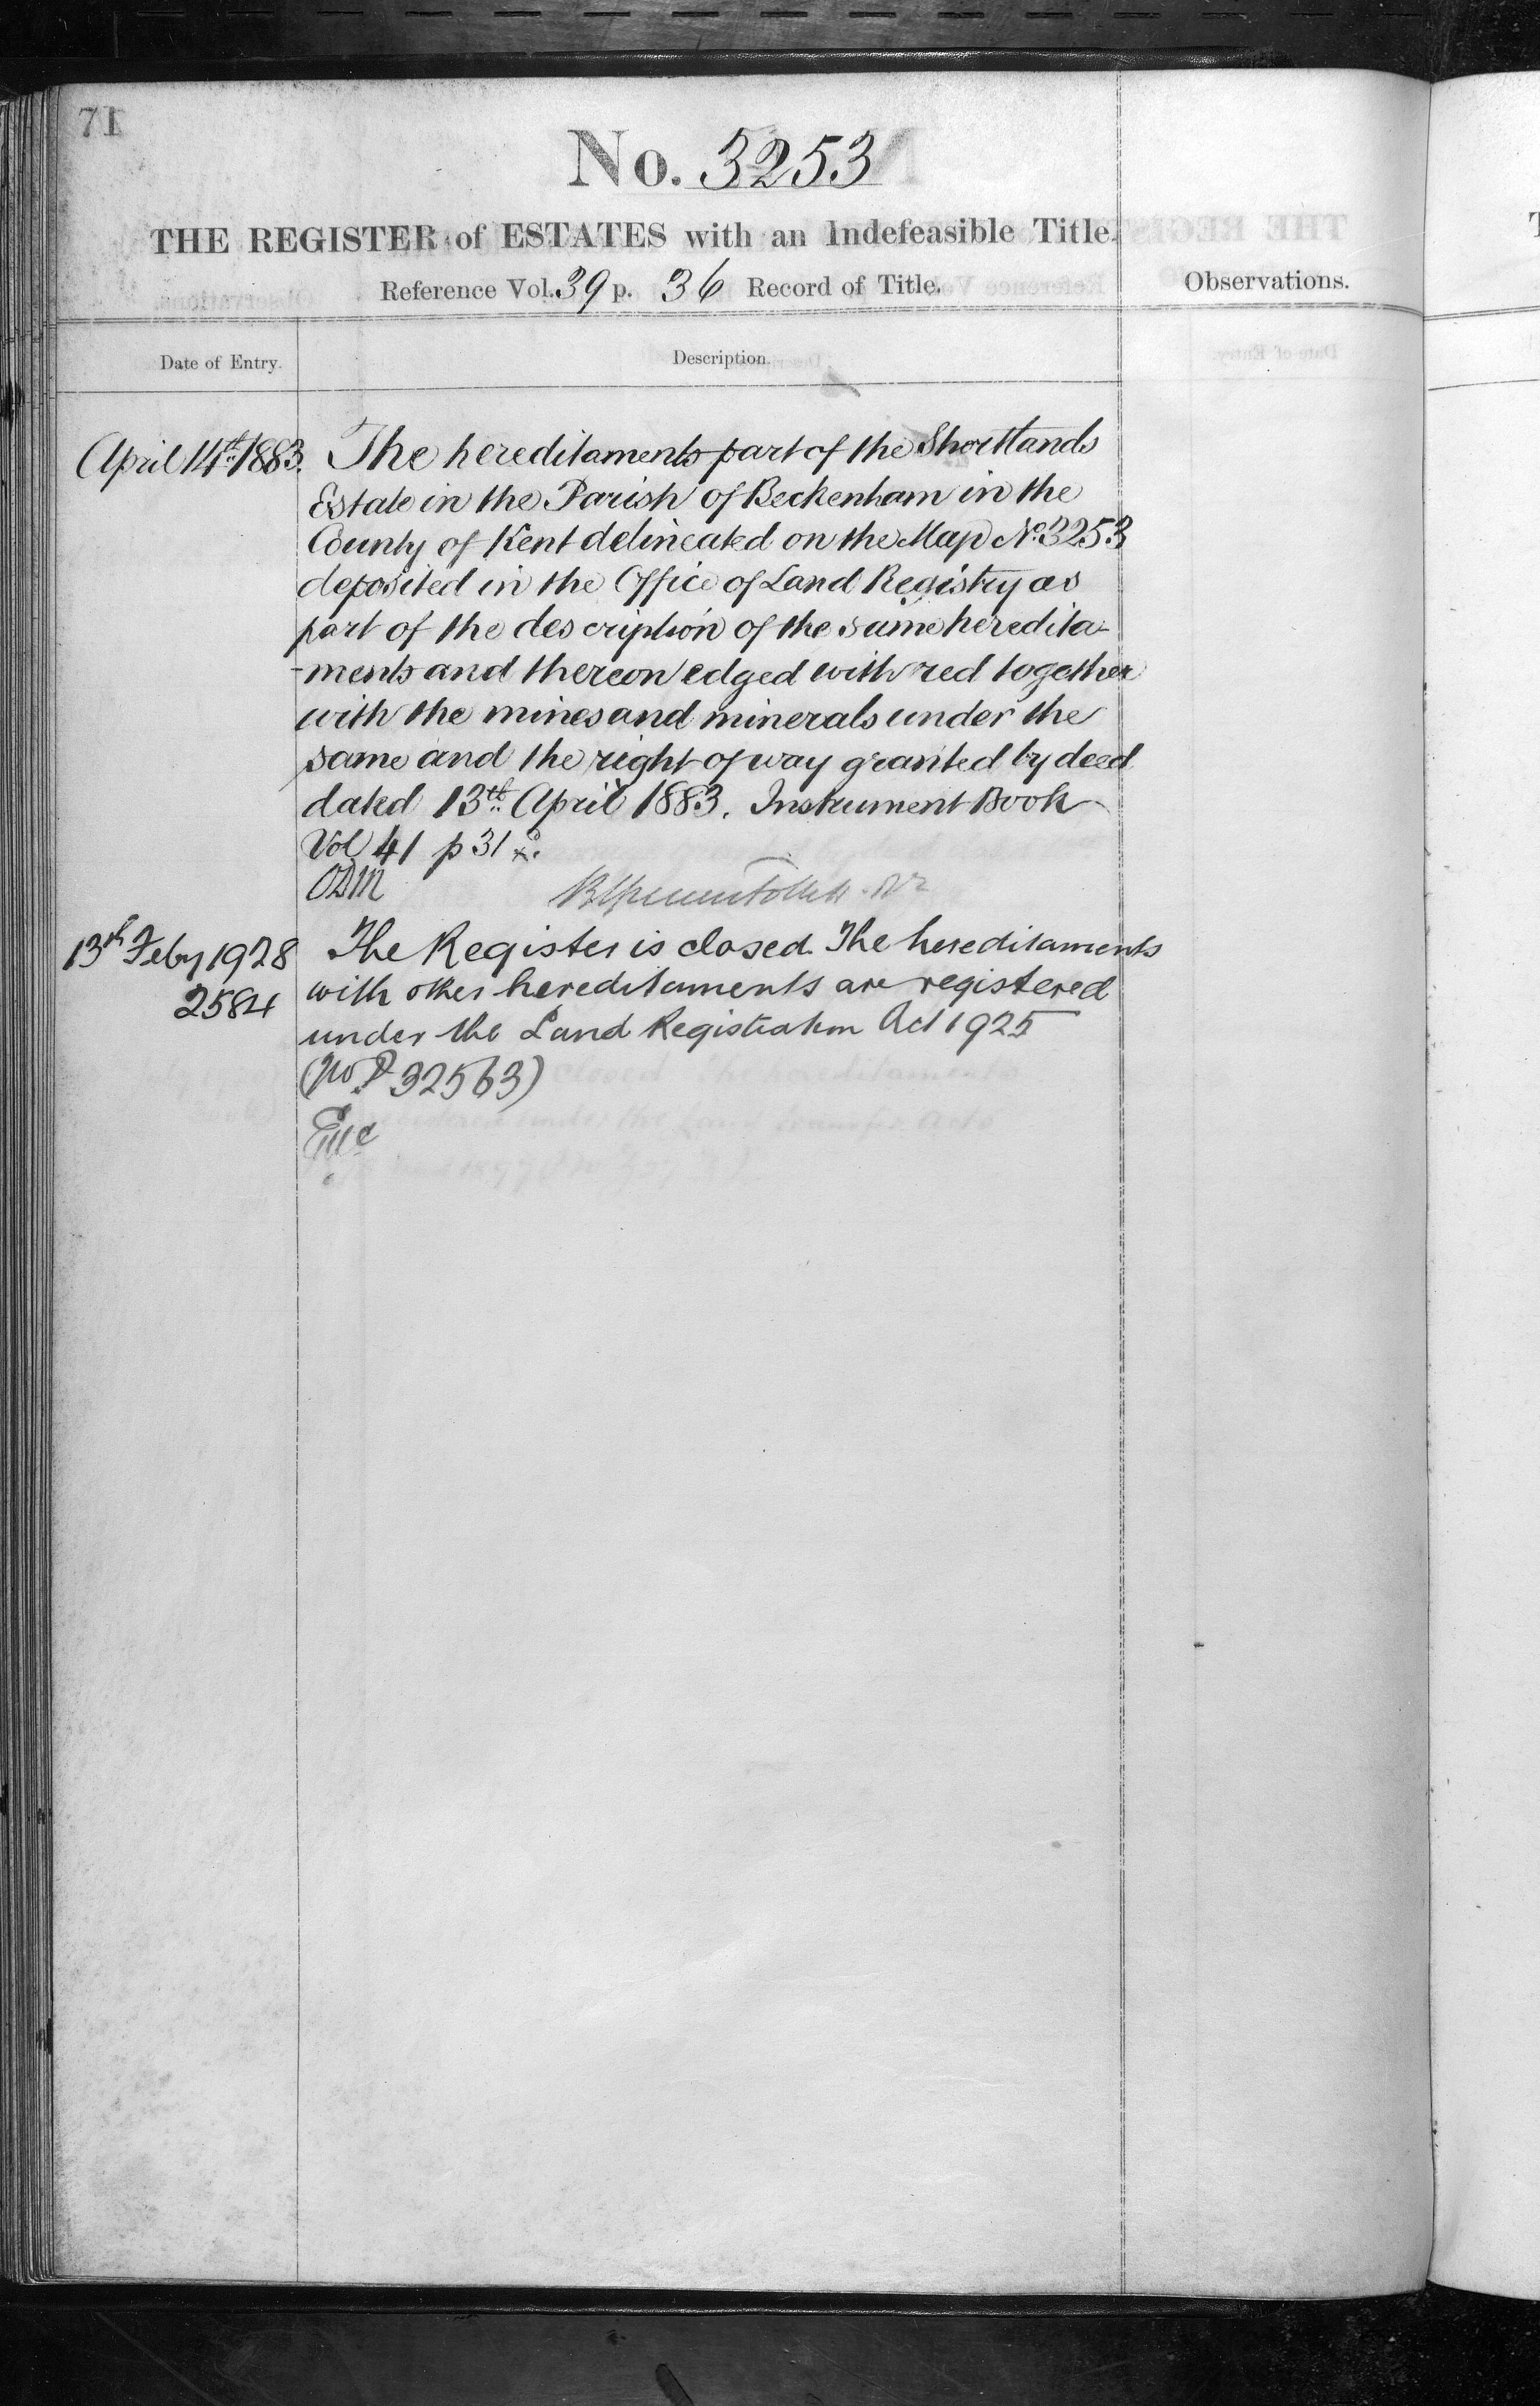 71
No. 3253
THE REGISTER of ESTATES with an Indefeasible Title.
Reference Vol. 39 p. 36 Record of Title.
Observations.
Date of Entry.
Description.
April 14th 1883. The hereditaments part of the Shortlands
Estate in the Parish of Beckenham in the
County of Kent delineated on the Map No. 3253
deposited in the Office of Land Registry as
part of the description of the same heredita-
-ments and thereon edged with red together
with the mines and minerals under the
same and the right of way granted by deed
dated 13th April 1883. Instrument Book
Vol 41 p 31
ODM
13th Feby 1928 The Register is closed. The hereditaments
2584 with other hereditaments are registered
under the Land Registration Act 1925
(No P 32563)